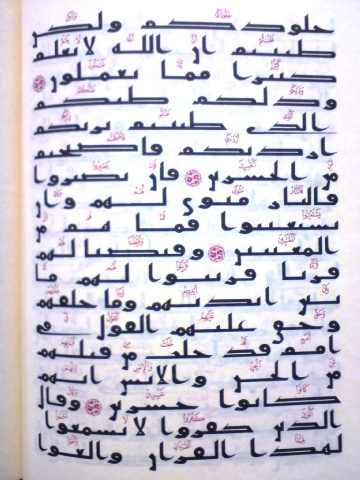 جلودكم ولكن
ظننتم ان الله لا يعلم
كثيرا مما تعملون
وذلكم ظنكم
الذى ظننتم بربكم
ارديكم فاصبحتم
من الخسرين فان يصبروا
فالنار مثوى لهم وان
يستعتبوا فما هم من
المعتبين وقيضنا لهم
قرنا فزينوا لهم ما
بين ايديهم وما خلفهم
وحق عليهم القول فى
امم قد خلت من قبلهم
من الجن والانس انهم
كانوا خسرين وقال
الذين كفروا لا تسمعوا
لهذا القران والغوا